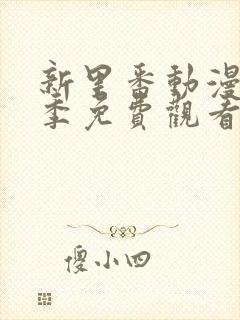 新里番動漫
季免費觀看
傻小四